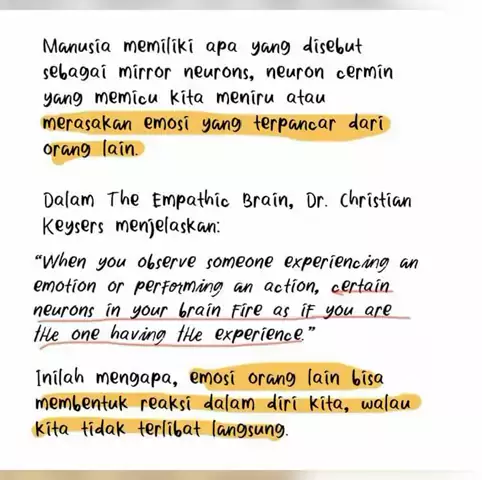 Manusia memiliki apa yang disebut
sebagai mirror neurons, neuron cermin
yang memicu kita meniru atau
merasakan emosi yang terpancar dari
orang lain.
Dalam The Empathic Brain, Dr. Christian
Keysers menjelaskan:
"When you observe someone experiencing an
emotion or performing an action, certain
neurons in your brain fire as if you are
the one having the experience."
Inilah mengapa, emosi orang lain bisa
membentuk reaksi dalam diri kita, walau
kita tidak terlibat langsung.